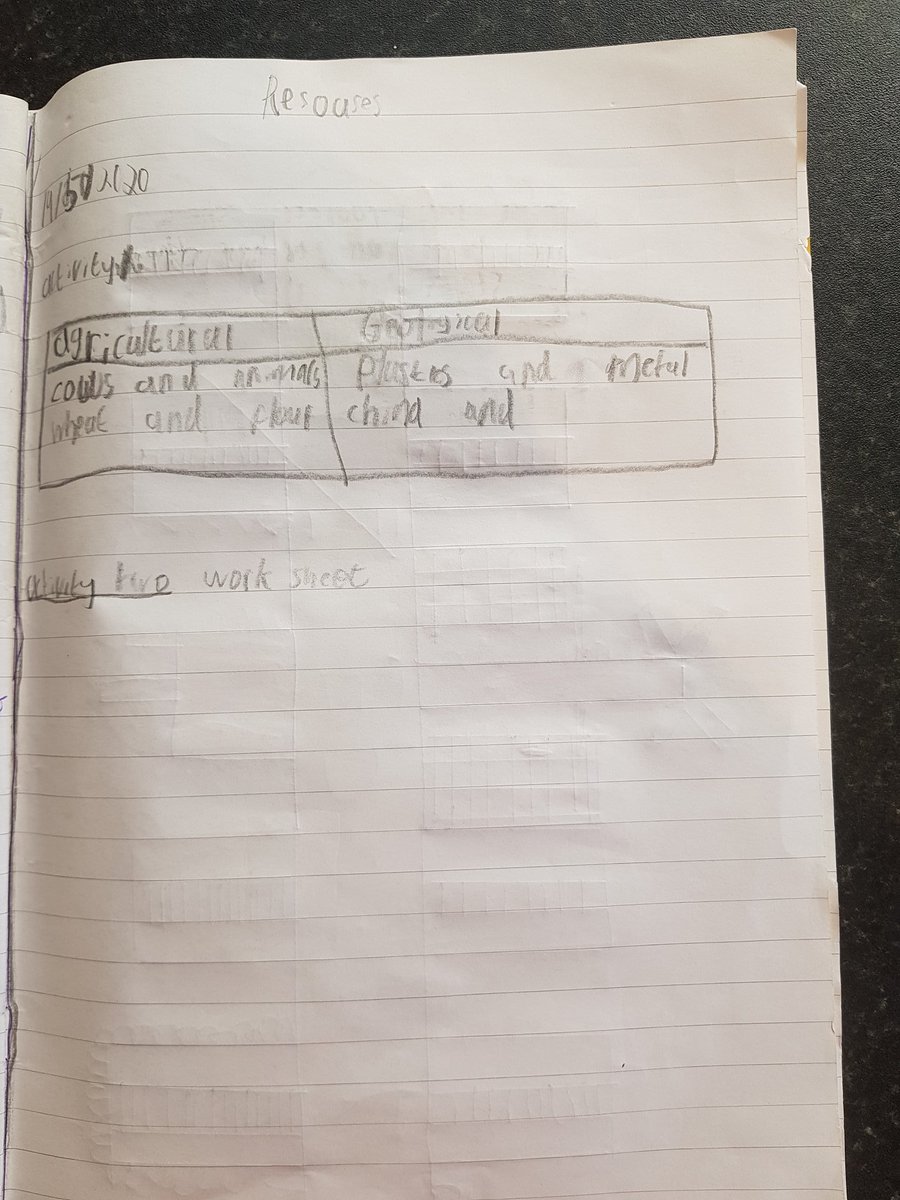 Resouses
activity
agricultural
cows and animals plastics and metal
wheat and flour china and
activity two work sheet